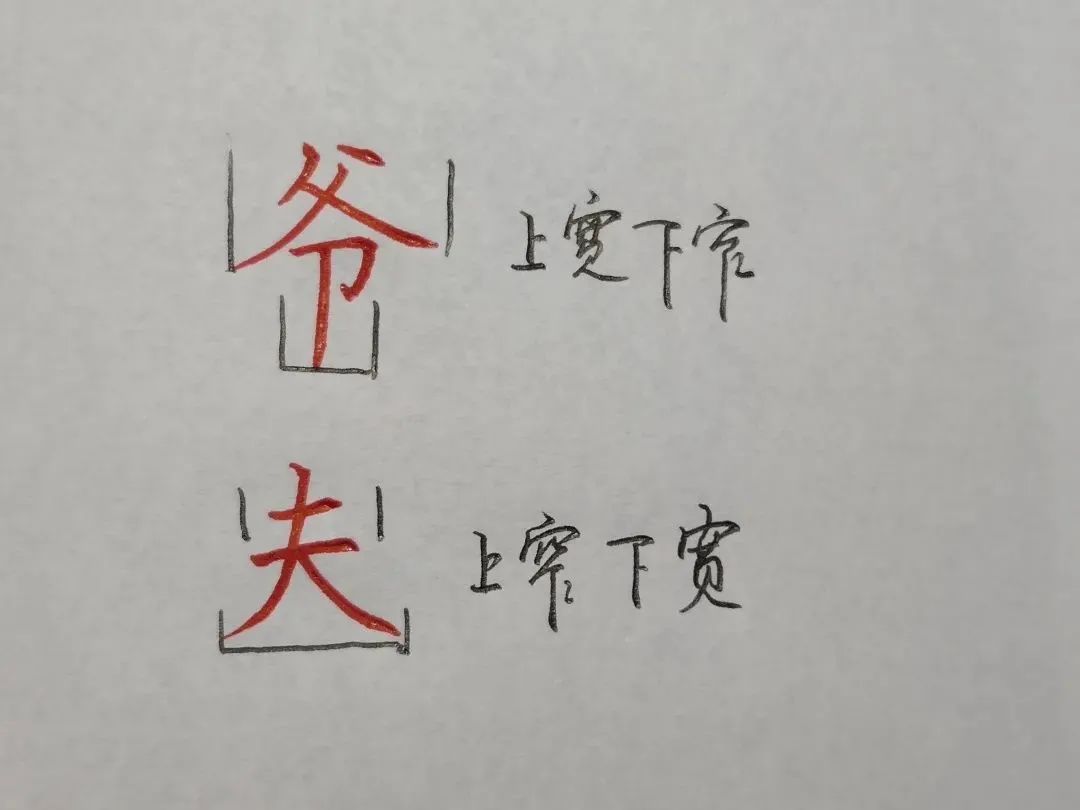 爷 上宽下窄
夫 上窄下宽